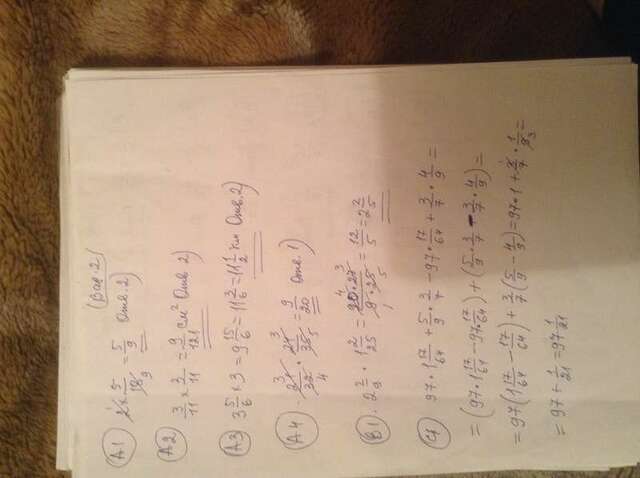 Вар. 2
A1 2 × 5/18 = 5/9 Отв. 2)
A2
3/11 × 3/11 = 9/121 см² Отв 2)
A3 3 5/6 × 3 = 9 15/6 = 11 3/6 = 11 1/2 км Отв. 2)
A4
· 27/35 = 9/20 Отв. 1)
B1. 2 2/9 · 1 2/25 = 20·27/9·25 = 12/5 = 2 2/5
C1 97 · 1 17/64 + 5/9 · 3/7 - 97 · 17/64 + 3/7 · 4/9 =
= (97 · 1 17/64 - 97 · 17/64) + (5/9 · 3/7 - 3/7 · 4/9) =
= 97(1 17/64 - 17/64) + 3/7(5/9 - 4/9) = 97·1 + 3/7 · 1/9 =
= 97 + 1/21 = 97 1/21